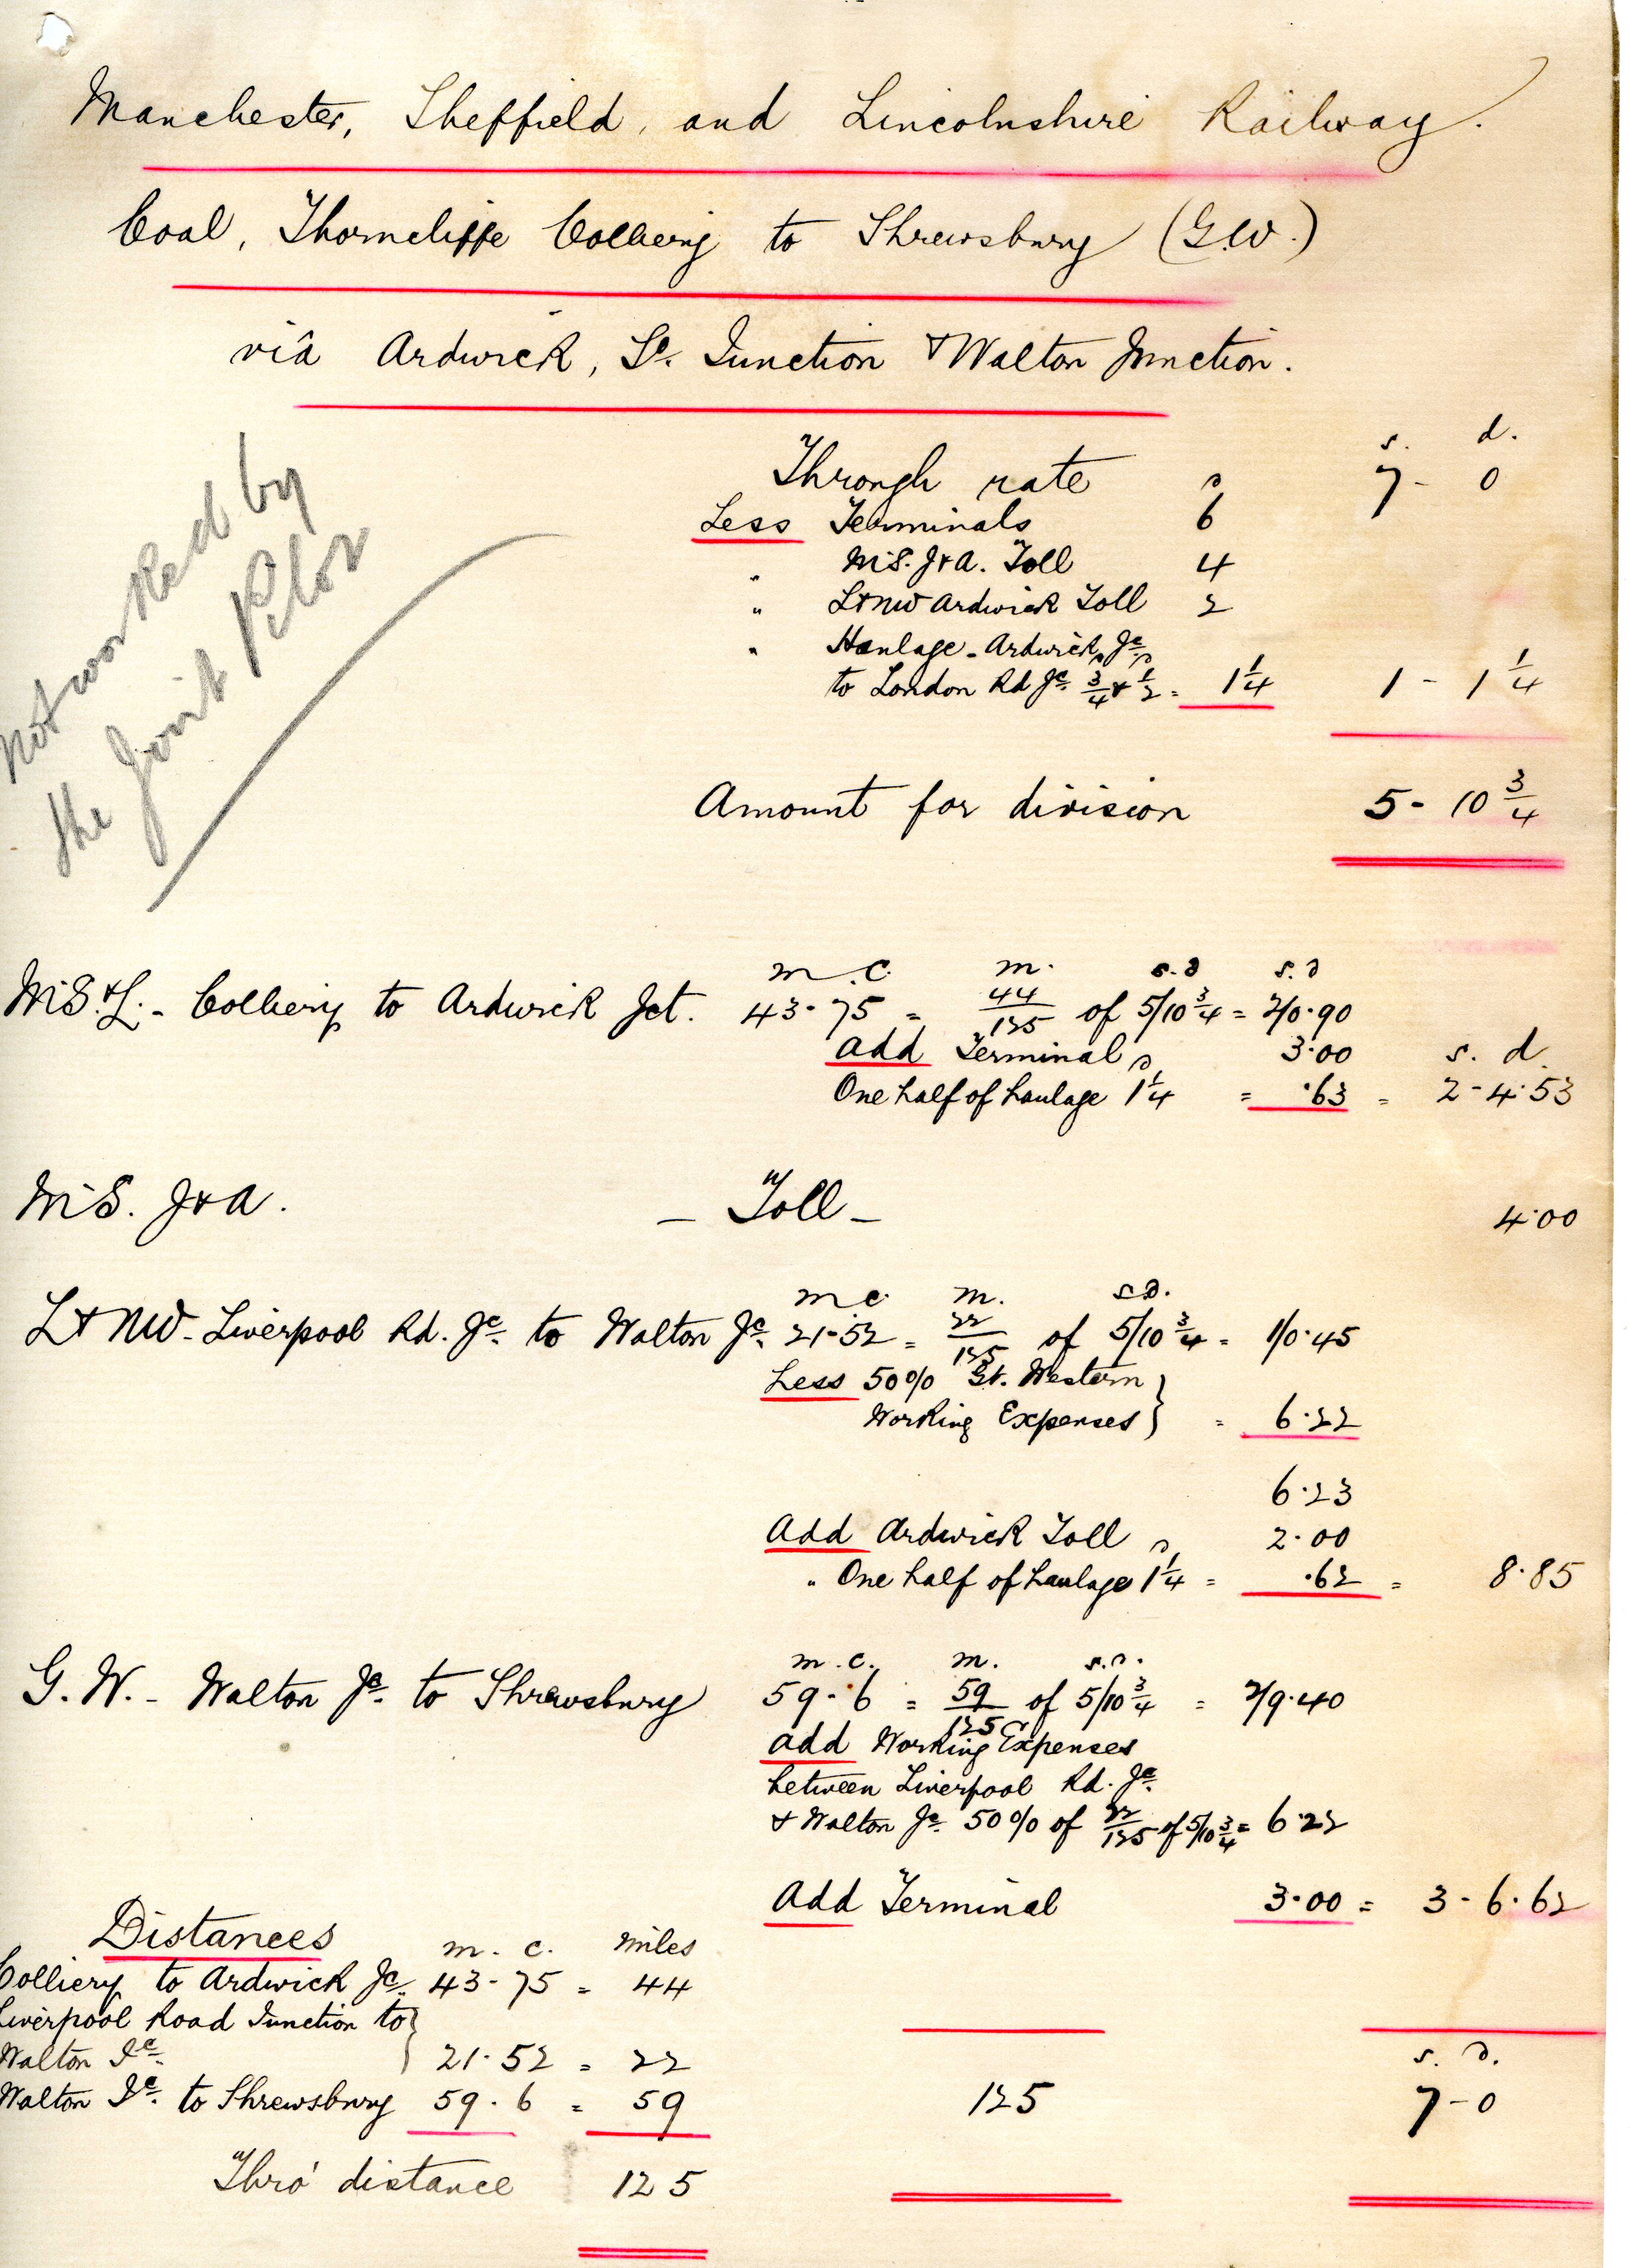 Manchester, Sheffield, and Lincolnshire Railway.
Coal, Thorncliffe Colliery to Shrewsbury (G.W.)
viâ Ardwick, Jc. Junction & Walton Junction.
s. d.
Through rate d 7 - 0
Less Terminals 6
" M.S. J&A. Toll 4
" L&NW Ardwick Toll 2
" Haulage - Ardwick Jc.
to London Rd Jc. 3/4 & 1/2 = 1 1/4 1 - 1 1/4
Amount for division 5 - 10 3/4
Not worked by
the Joint Pilot
m. c. m. s.d s.d
M.S.&L. - Colliery to Ardwick Jct. 43-75 = 44/125 of 5/10 3/4 = 2/0.90
Add Terminal 3.00 s. d.
One half of haulage 1 1/4 = .63 = 2-4.53
M.S. J&A. - Toll - 4.00
m c. m. s.d.
L&NW - Liverpool Rd. Jc. to Walton Jc. 21-52 = 22/125 of 5/10 3/4 = 1/0.45
Less 50% Gt. Western }
Working Expenses } = 6.22
6.23
Add Ardwick Toll 2.00
" One half of haulage 1 1/4 = .62 = 8.85
m. c. m. s.d.
G.W. - Walton Jc. to Shrewsbury 59-6 = 59/125 of 5/10 3/4 = 2/9.40
Add Working Expenses
between Liverpool Rd. Jc.
& Walton Jc. 50% of 22/125 of 5/10 3/4 = 6.22
Add Terminal 3.00 = 3-6.62
Distances m. c. Miles
Colliery to Ardwick Jc. 43-75 = 44
Liverpool Road Junction to }
Walton Jc. } 21.52 = 22
s. d.
Walton Jc. to Shrewsbury 59.6 = 59 125 7-0
Thro' distance 125